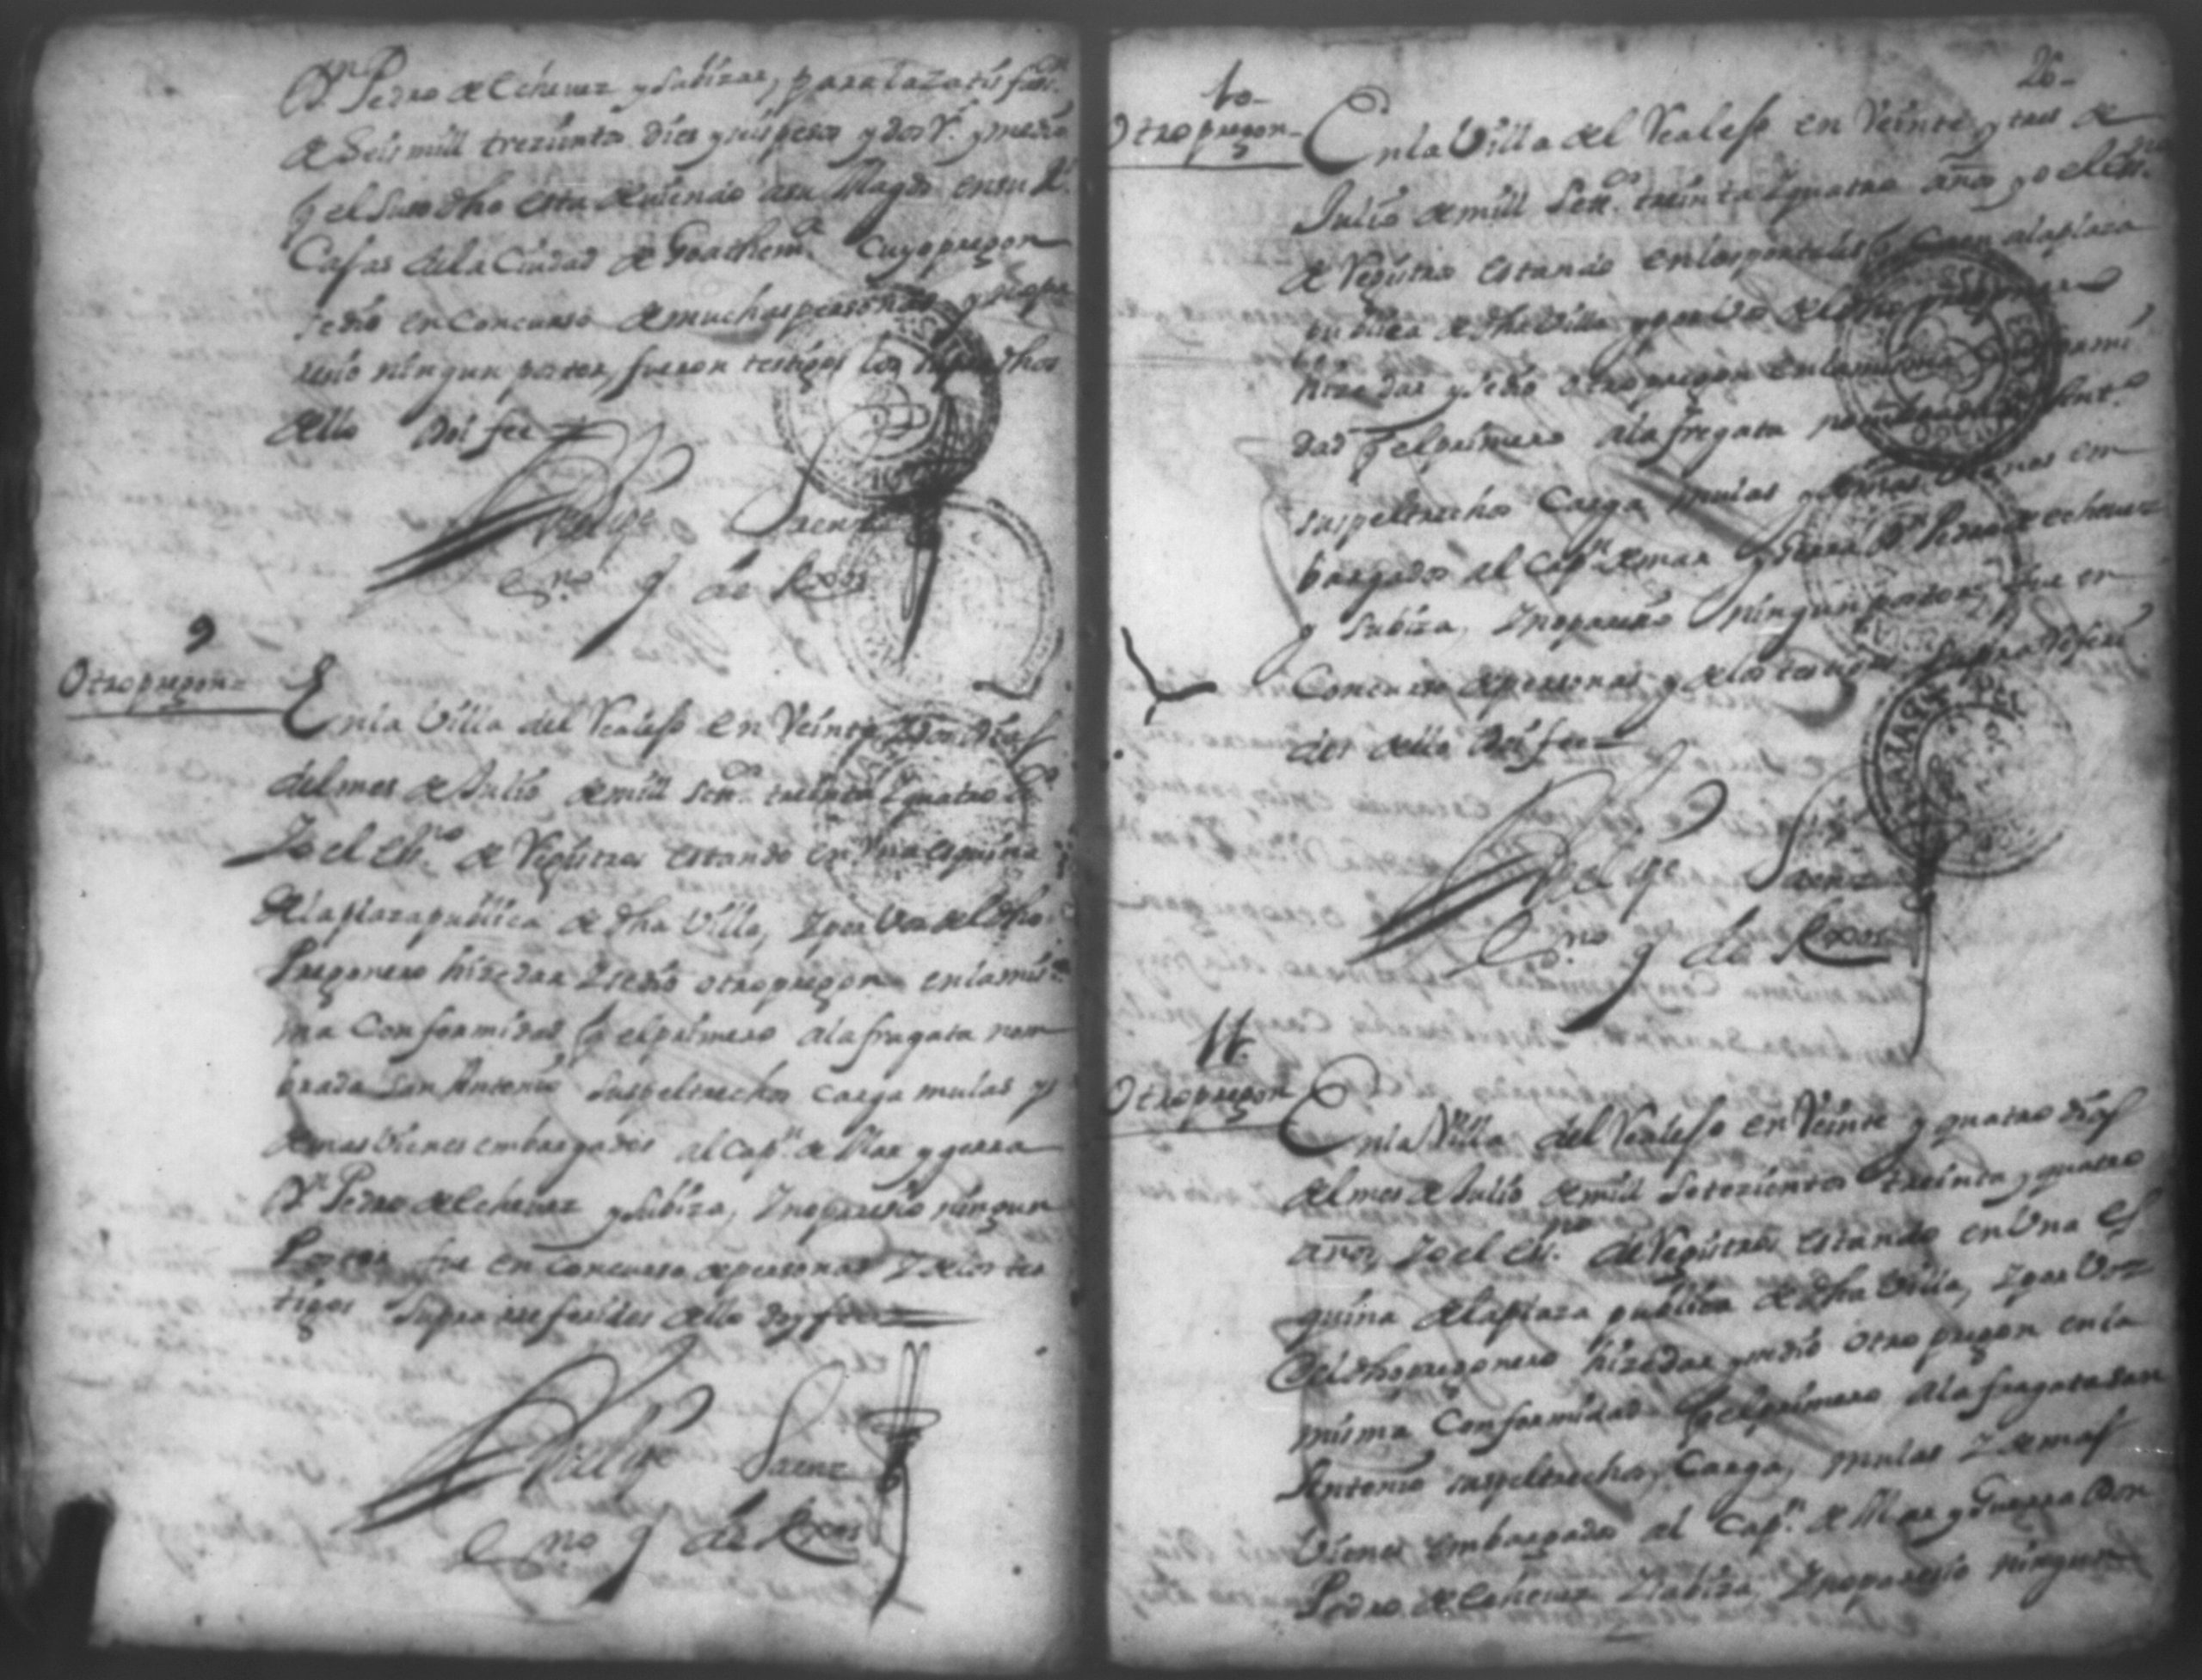 Dn Pedro de Echeverz y Subiza, para la satisfon
de Seis mill trezientos dies y seis pesos y dos rs. y medio
q el suso dho esta deviendo a su Magd en su Rs.
Cajas de la Ciudad de Goathema. Cuyo pregon
se dio en Concurso de muchas personas y no pa
recio ningun postor, fueron testigos los dhos
dello doi fee
Phelipe Saenz
Esno R de Roxos
9
Otro pregon
En la Villa del Realejo en Veinte y dos dias
del mes de Julio de mill Setos. treinta y quatro as.
Yo el essno. de Registros estando en Una esquina
de la plaza publica de dha Villa, y por Voz del dho
Pregonero hize dar y se dio otro pregon en la mis
ma Conformidad q el primero a la fragata nom
brada San Antonio sus peltrechos carga mulas y
demas Vienes embargados al Capn. de Mar y gerra
Dn Pedro de Echeverz y Subiza, y no parecio ningun
Postor fue en Concurso de personas y de los tes
tigos Supra referidos dello doy fee
Phelipe Saenz
Esno R de Roxos
26
10
Otro pregon
En la Villa del Realejo en Veinte y tres de
Julio de mill Setos. treinta y quatro años yo el essno.
de Registros estando en los portales q Caen a la plaza
publica de dha Villa y por Voz del dho pregonero
hize dar y se dio otro pregon en la misma Conformi
dad q el primero a la fregata nombrada Sn. Anto.
sus peltrechos Carga mulas y demas Vienes em
bargados al Capn. de mar y Gerra Dn Pedro de echeverz
y Subiza, y no parecio ningun postor, fue en
Concurso de personas y de los testigos supra referi
dos dello doi fee
Phelipe Saenz
Esno R de Roxos
11
Otro pregon
En la Villa del Realejo en Veinte y quatro dias
del mes de Julio de mill Setezientos treinta y quatro
años, Yo el essno. de Registros estando en Una es
quina de la plaza publica de dha Villa, y por Voz
del dho pregonero hize dar y se dio otro pregon en la
misma Conformidad q el primero a la fragata San
Antonio sus peltrechos, Carga, mulas y demas
Vienes embargados al Capn. de Mar y Guerra Don
Pedro de Echeverz y Subiza, y no parecio ningun